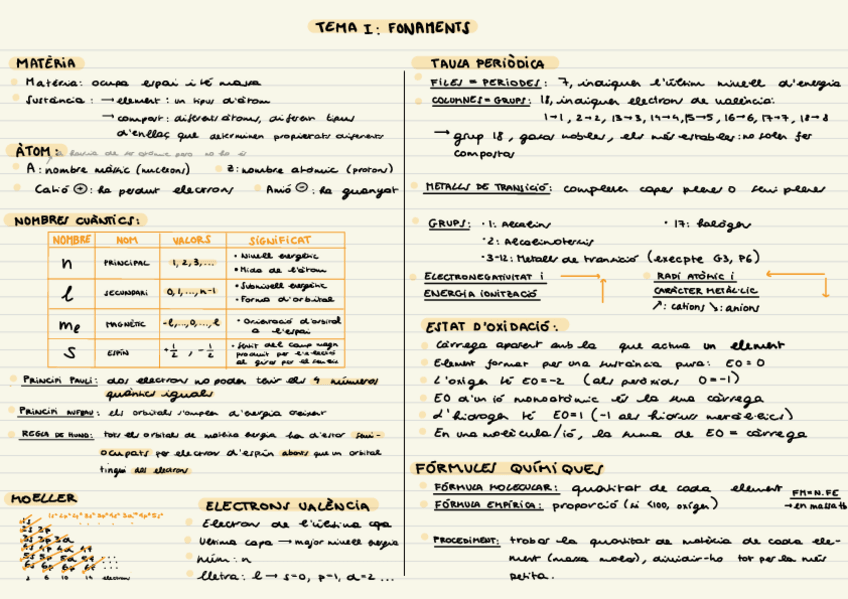 TEMA I: FONAMENTS
MATÈRIA
Matèria: ocupa espai i té massa
Substància: → element: un tipus d'àtom
→ compost: diferents àtoms, diferent tipus
d'enllaç que determinen propietats diferents
ÀTOM:
A: nombre màssic (nucleons) Z: nombre atòmic (protons)
Catió ⊕: ha perdut electrons Anió ⊖: ha guanyat
NOMBRES CUÀNTICS:
NOMBRE NOM VALORS SIGNIFICAT
n PRINCIPAL 1, 2, 3, ... • Nivell energètic
• Mida de l'àtom
l SECUNDARI 0, 1, ..., n-1 • Subnivell energètic
• Forma d'orbital
me MAGNÈTIC -l, ..., 0, ..., l • Orientació d'orbital
a l'espai
s ESPÍN +1/2, -1/2 • Sentit del camp magn
produït per l'electró
al girar per el seu eix
PRINCIPI PAULI: dos electrons no poden tenir els 4 números
quàntics iguals
PRINCIPI AUFBAU: els orbitals s'omplen d'energia creixent
REGLA DE HUND: tots els orbitals de mateixa energia han d'estar semi-
ocupats per electrons d'espín abans que un orbital
tingui dos electrons
MOELLER
1s
2s 2p
3s 3p 3d
4s 4p 4d 4f
5s 5p 5d 5f ...
6s 6p 6d 6f ...
2 6 10 14 electrons
ELECTRONS VALÈNCIA
Electrons de l'última capa
Última capa → major nivell energia
Núm: n
Lletra: l → s=0, p=1, d=2 ...
TAULA PERIÒDICA
FILES = PERÍODES: 7, indiquen l'últim nivell d'energia
COLUMNES = GRUPS: 18, indiquen electrons de valència:
1→1, 2→2, 13→3, 14→4, 15→5, 16→6, 17→7, 18→8
→ grup 18, gasos nobles, els més estables: no solen fer
compostos
METALLS DE TRANSICIÓ: completen capes plenes o semi plenes
GRUPS: • 1: Alcalins • 17: halògens
• 2: Alcalinoterris
• 3-12: Metalls de transició (excepte G3, P6)
ELECTRONEGATIVITAT i
ENERGIA IONITZACIÓ
RADI ATÒMIC i
CARÀCTER METÀL·LIC
↗: cations ↘: anions
ESTAT D'OXIDACIÓ:
Càrrega aparent amb la que actua un element
Element format per una substància pura: EO = 0
L'oxigen té EO=-2 (als peròxids O=-1)
EO d'un ió monoatòmic és la seva càrrega
L'hidrogen té EO=1 (-1 als hidrurs metàl·lics)
En una molècula/ió, la suma de EO = càrrega
FÓRMULES QUÍMIQUES
FÓRMULA MOLECULAR: quantitat de cada element FM=N.FE
FÓRMULA EMPÍRICA: proporció (si <100, oxigen) → en massa
PROCEDIMENT: trobar la quantitat de matèria de cada ele-
ment (massa molar), dividir-ho tot per la més
petita.